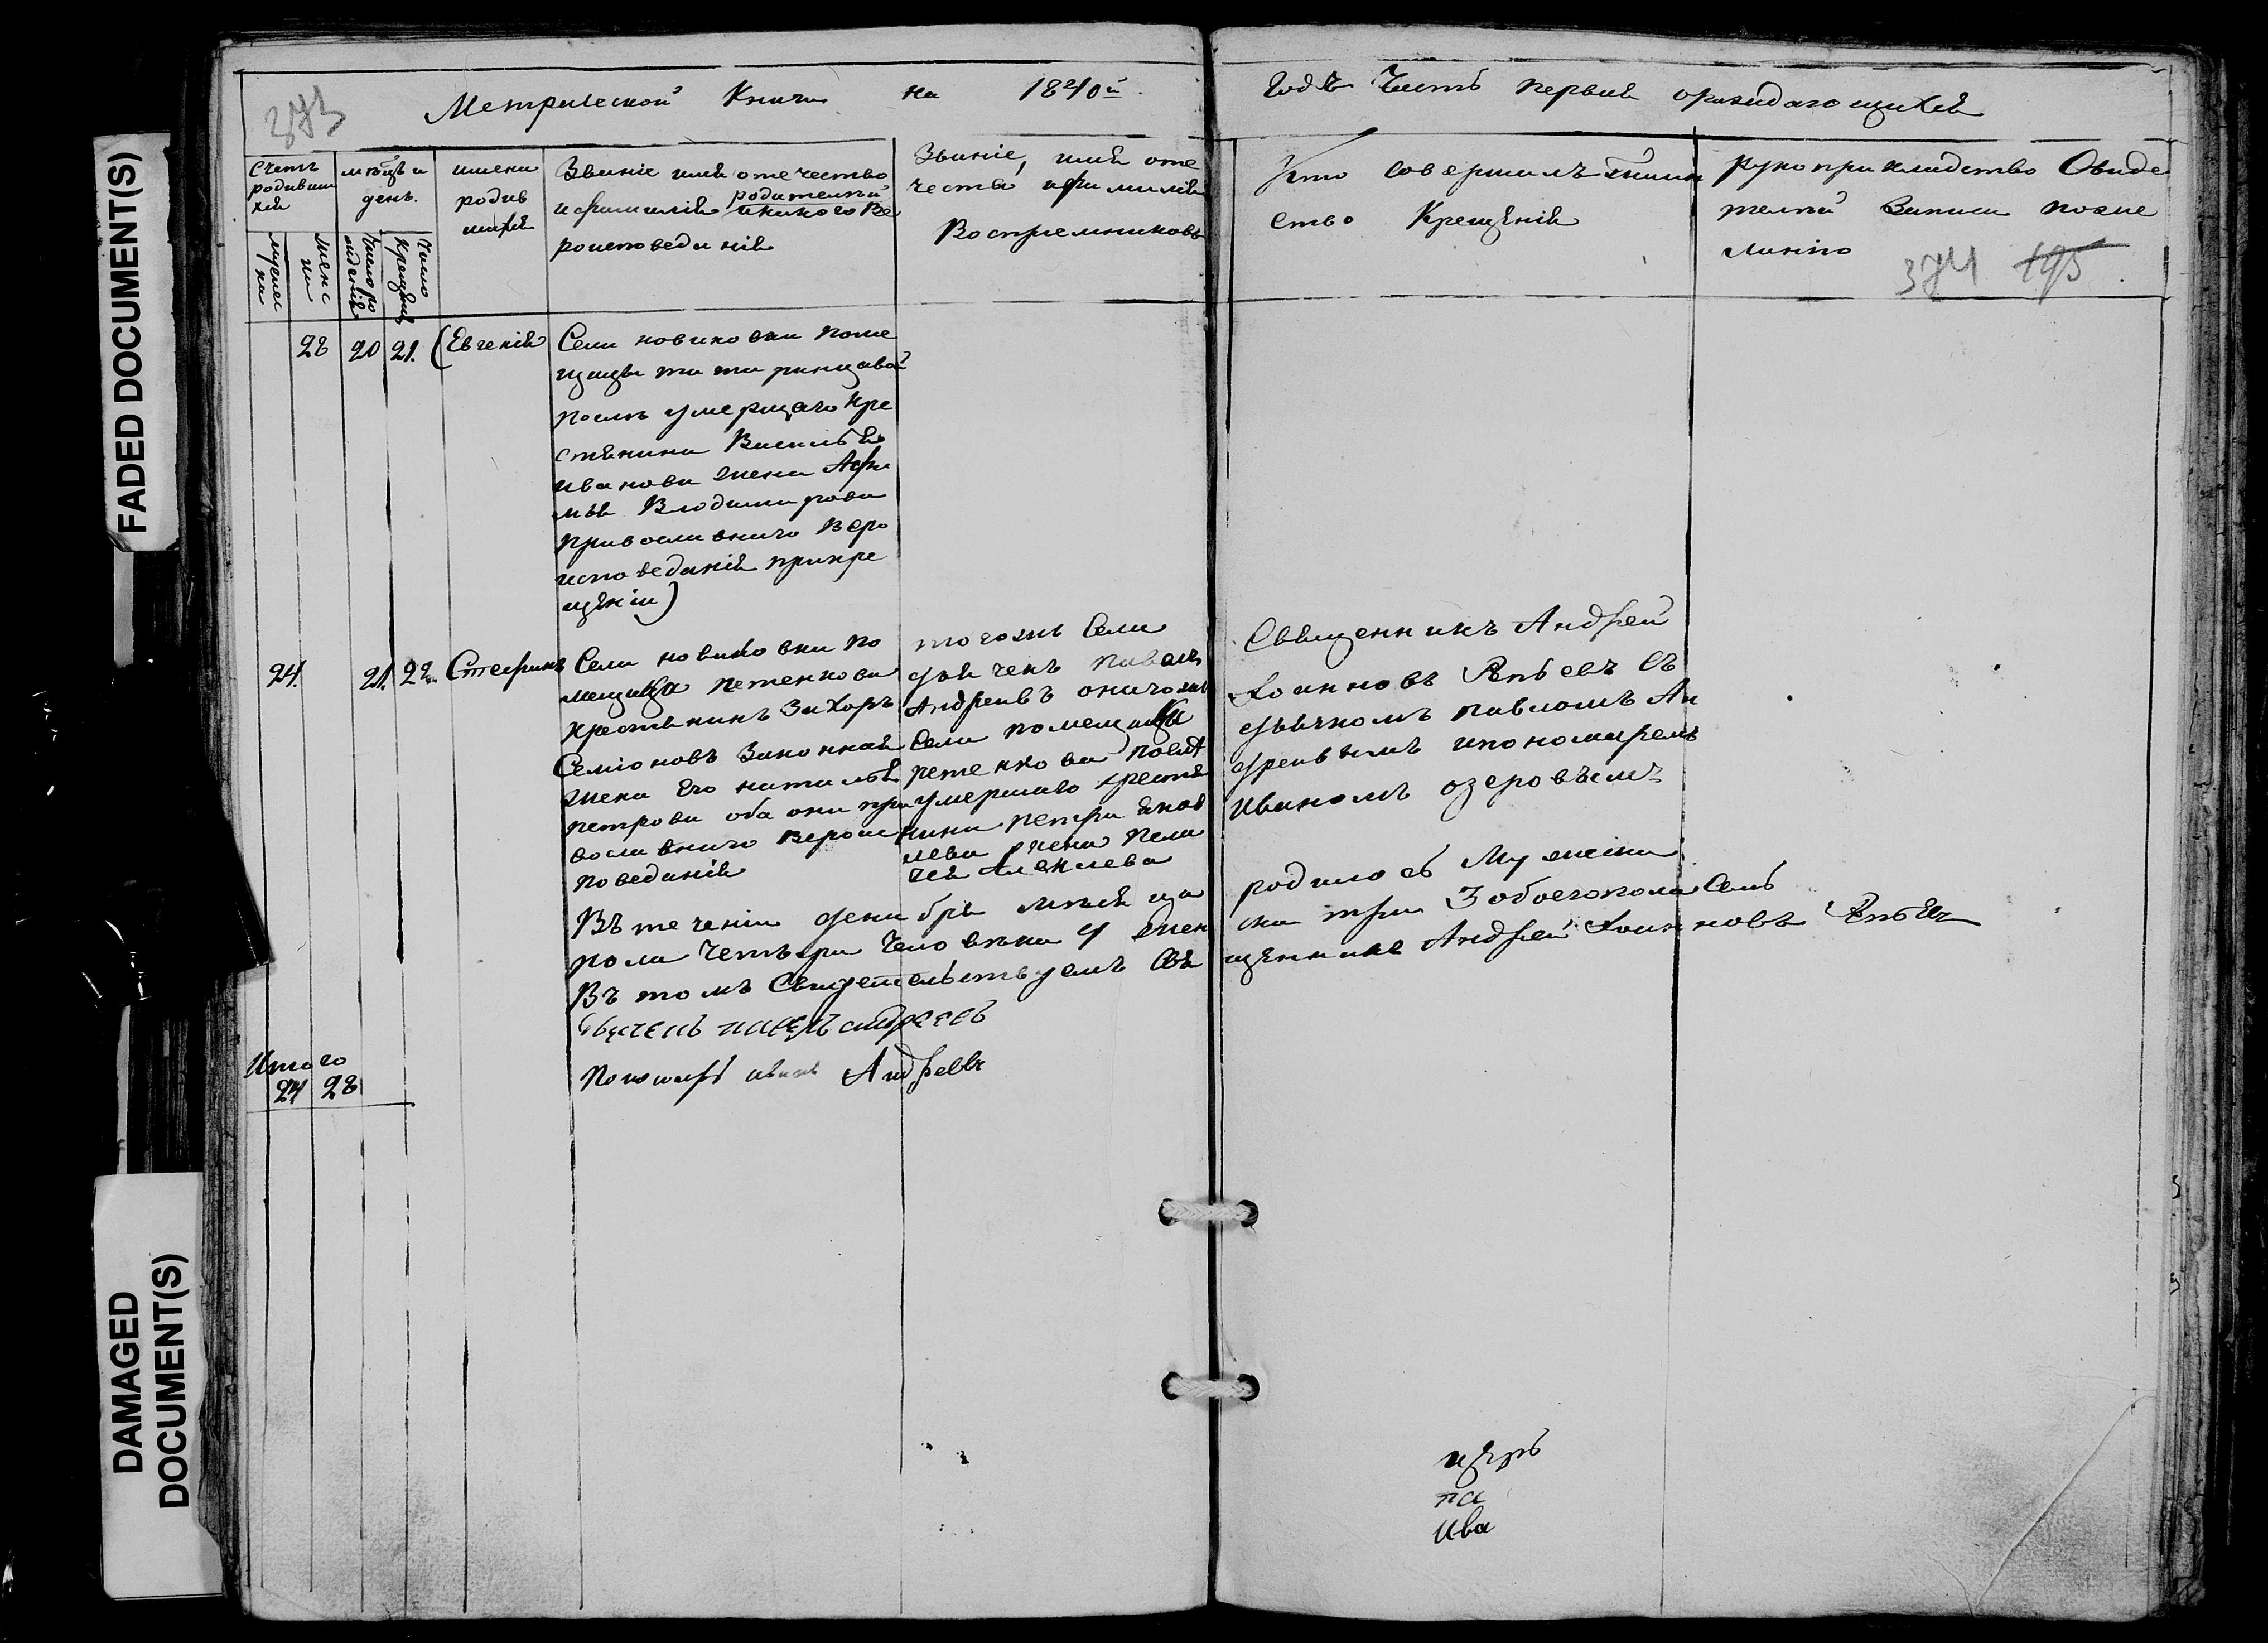 FADED DOCUMENT(S)
DAMAGED
DOCUMENT(S)
373
Метрической Книги на 1840й
Годъ Часть первая о раждающихся
Счетъ
родивши
хся
мѣцъ и
день.
имена
родив
шихся
Званіе имя отечество
и фамилія родителей
и какого Ве
роисповеданія
Званіе, имя оте
чество и фамилія
Воспреемниковъ
Кто совершалъ таин
ство Крещенія
Рукоприкладство Свиде
телей Записи по же
ланію
374 195
мужес
ка
женс
ка
Число ро
жденія
Число
Крещенія
28 20 21. (Евгенія
Села новиковки поме
щицы
послѣ умершаго Кре
стянина Василья
Иванова жена Афи
мья Влодимирова
православнаго Веро
исповеданія прикре
щеніи)
24. 21. 22. Стефанъ
Села новиковки по
мещика петенкова
Крестянинъ Захаръ
Семіоновъ Законная
жена Его наталья
петрова оба они пра
вославнаго вероис
поведанія
тогожъ Села
дьяченъ павелъ
Андреивъ оногожъ
Села помещика
петенкова послѣ
умершаго крестя
нина петра Яков
лева жена пела
гея Алексеева
Священникъ Андрей
Іоанновъ съ
дьячкомъ павломъ Ан
дреивымъ и пономаремъ
Иваномъ озеровымъ
Въ теченіи декабря месяца родилось Мужеска
пола четыри человека 4 женска три 3 обоегопола Семь
Въ томъ Свидетельствуемъ Священникъ Андрей Іоанновъ
Дьяченъ павелъ андреевъ
Пономарь иванъ Андреевъ
Итого
24 28
па
Ива